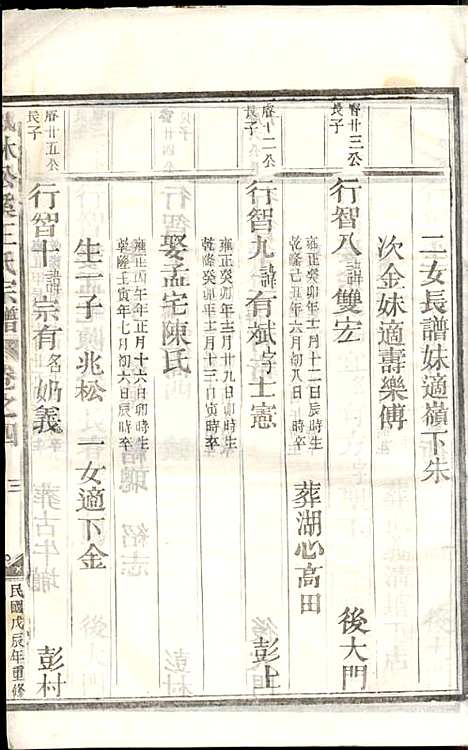 二女長譜妹適嶺下朱
次金妹適壽樂傅
睿廿三公長子
行智八諱雙宏 後大門
雍正癸卯年十二月十二日辰時生
乾隆己丑年六月初八日 時卒 葬湖心高田
睿十二公長子
行智九諱有斌字士憲 彭上
雍正癸卯年十二月廿九日卯時生
乾隆癸卯年十二月十三日寅時卒
娶孟宅陳氏
雍正四午年正月十六日卯時生
乾隆壬寅年七月初六日辰時卒
生一子兆松 一女適下金
睿廿五公長子
行智十諱宗有名奶義 彭村
王氏宗譜 卷之四 三 民國戊辰年重修